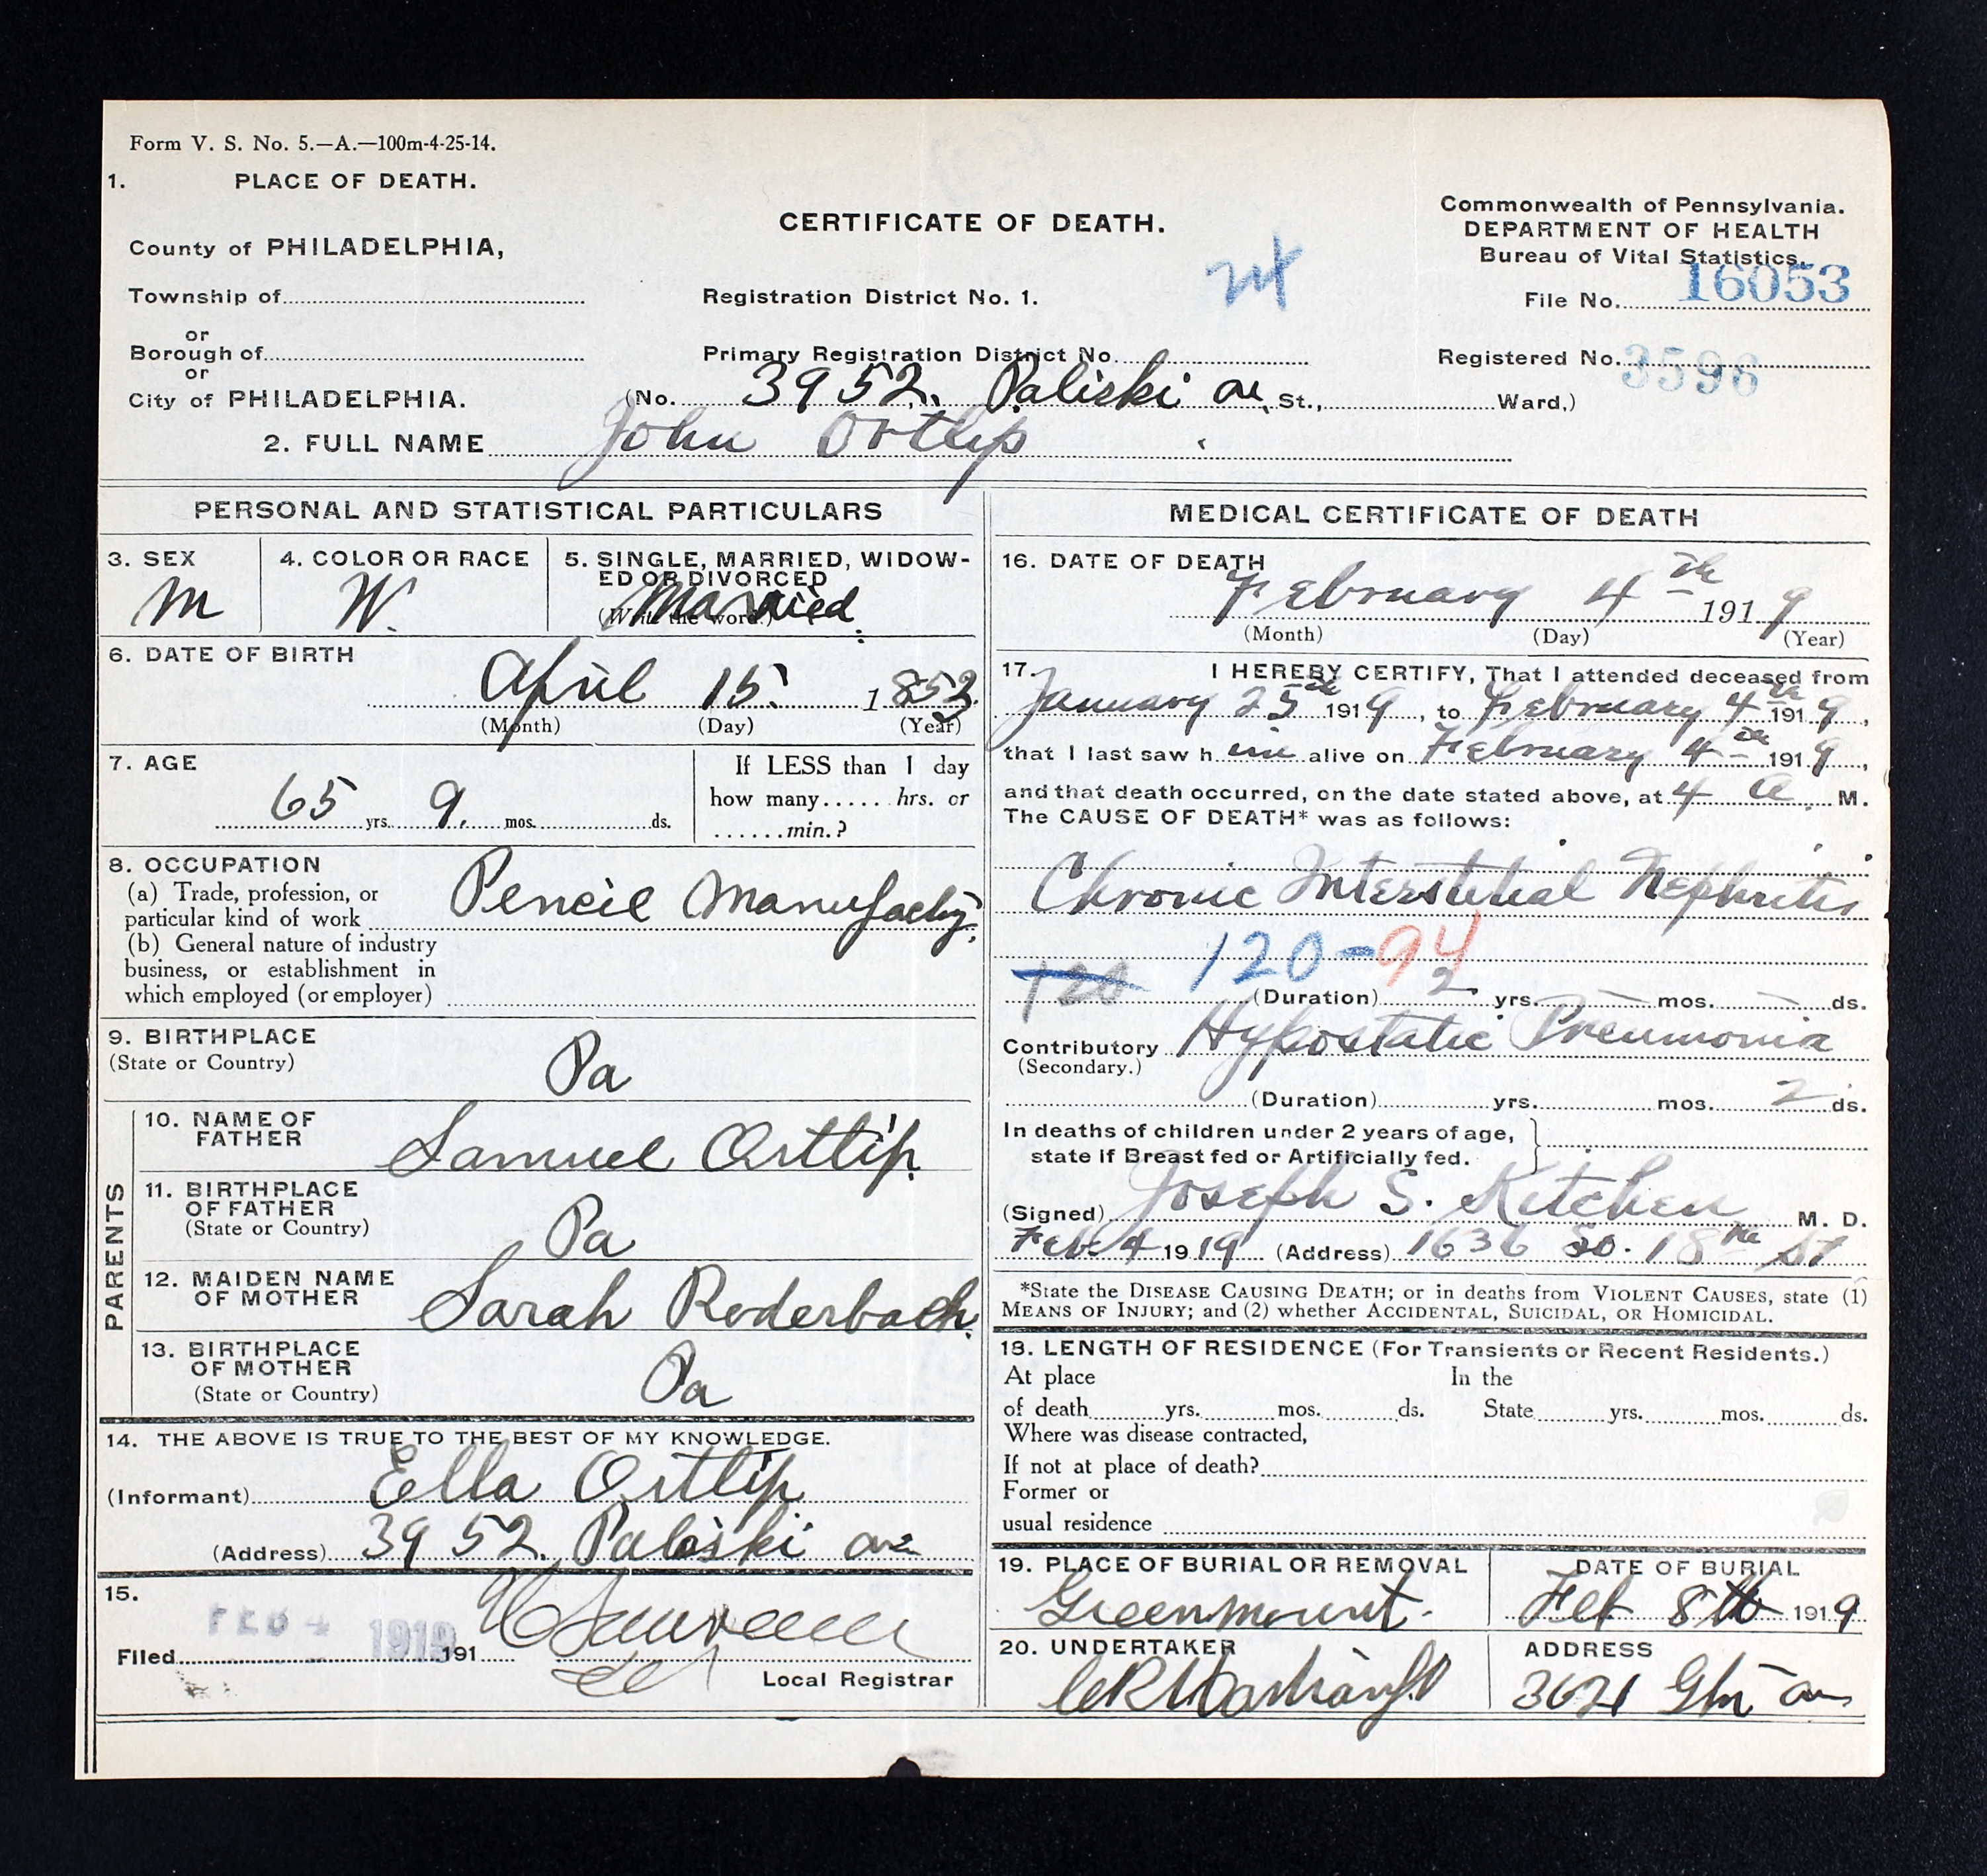 Form V. S. No. 5.—A.—100m-4-25-14.
1. PLACE OF DEATH.
County of PHILADELPHIA,
Township of
or
Borough of
or
City of PHILADELPHIA.
CERTIFICATE OF DEATH.
Registration District No. 1.
Primary Registration District No.
(No. 3952. Paliski av St., Ward,)
Commonwealth of Pennsylvania.
DEPARTMENT OF HEALTH
Bureau of Vital Statistics.
File No. 16053
Registered No. 3596
2. FULL NAME John Ortlip
PERSONAL AND STATISTICAL PARTICULARS
3. SEX
M
4. COLOR OR RACE
W.
5. SINGLE, MARRIED, WIDOW-
ED OR DIVORCED
(Write the word.)
Married
6. DATE OF BIRTH
April 15 1853
(Month) (Day) (Year)
7. AGE
65 yrs. 9. mos. ds.
If LESS than 1 day
how many...... hrs. or
......min.?
8. OCCUPATION
(a) Trade, profession, or
particular kind of work
Pencil
(b) General nature of industry
business, or establishment in
which employed (or employer)
9. BIRTHPLACE
(State or Country)
Pa
PARENTS
10. NAME OF
FATHER
Samuel Ortlip
11. BIRTHPLACE
OF FATHER
(State or Country)
Pa
12. MAIDEN NAME
OF MOTHER
Sarah Roderbach
13. BIRTHPLACE
OF MOTHER
(State or Country)
Pa
14. THE ABOVE IS TRUE TO THE BEST OF MY KNOWLEDGE.
(Informant) Ella Ortlip
(Address) 3952. Paliski ave
15.
Filed FEB 4 1919 191
Local Registrar
MEDICAL CERTIFICATE OF DEATH
16. DATE OF DEATH
February 4th 1919
(Month) (Day) (Year)
17. I HEREBY CERTIFY, That I attended deceased from
January 25th 1919, to February 4th 1919,
that I last saw him alive on February 4th 1919,
and that death occurred, on the date stated above, at 4 a. M.
The CAUSE OF DEATH* was as follows:
Chronic Interstitial Nephritis
120-94
120 (Duration) 2 yrs. – mos. – ds.
Contributory Hypostatic Pneumonia
(Secondary.)
(Duration) yrs. mos. 2 ds.
In deaths of children under 2 years of age,
state if Breast fed or Artificially fed.
(Signed) Joseph S. Kitchen M. D.
Feb 4 1919 (Address) 1636 So. 18th St
*State the DISEASE CAUSING DEATH; or in deaths from VIOLENT CAUSES, state (1)
MEANS OF INJURY; and (2) whether ACCIDENTAL, SUICIDAL, OR HOMICIDAL.
18. LENGTH OF RESIDENCE (For Transients or Recent Residents.)
At place In the
of death yrs. mos. ds. State yrs. mos. ds.
Where was disease contracted,
If not at place of death?
Former or
usual residence
19. PLACE OF BURIAL OR REMOVAL
Greenmount.
DATE OF BURIAL
Feb 8th 1919
20. UNDERTAKER
ADDRESS
3621 Gtn av